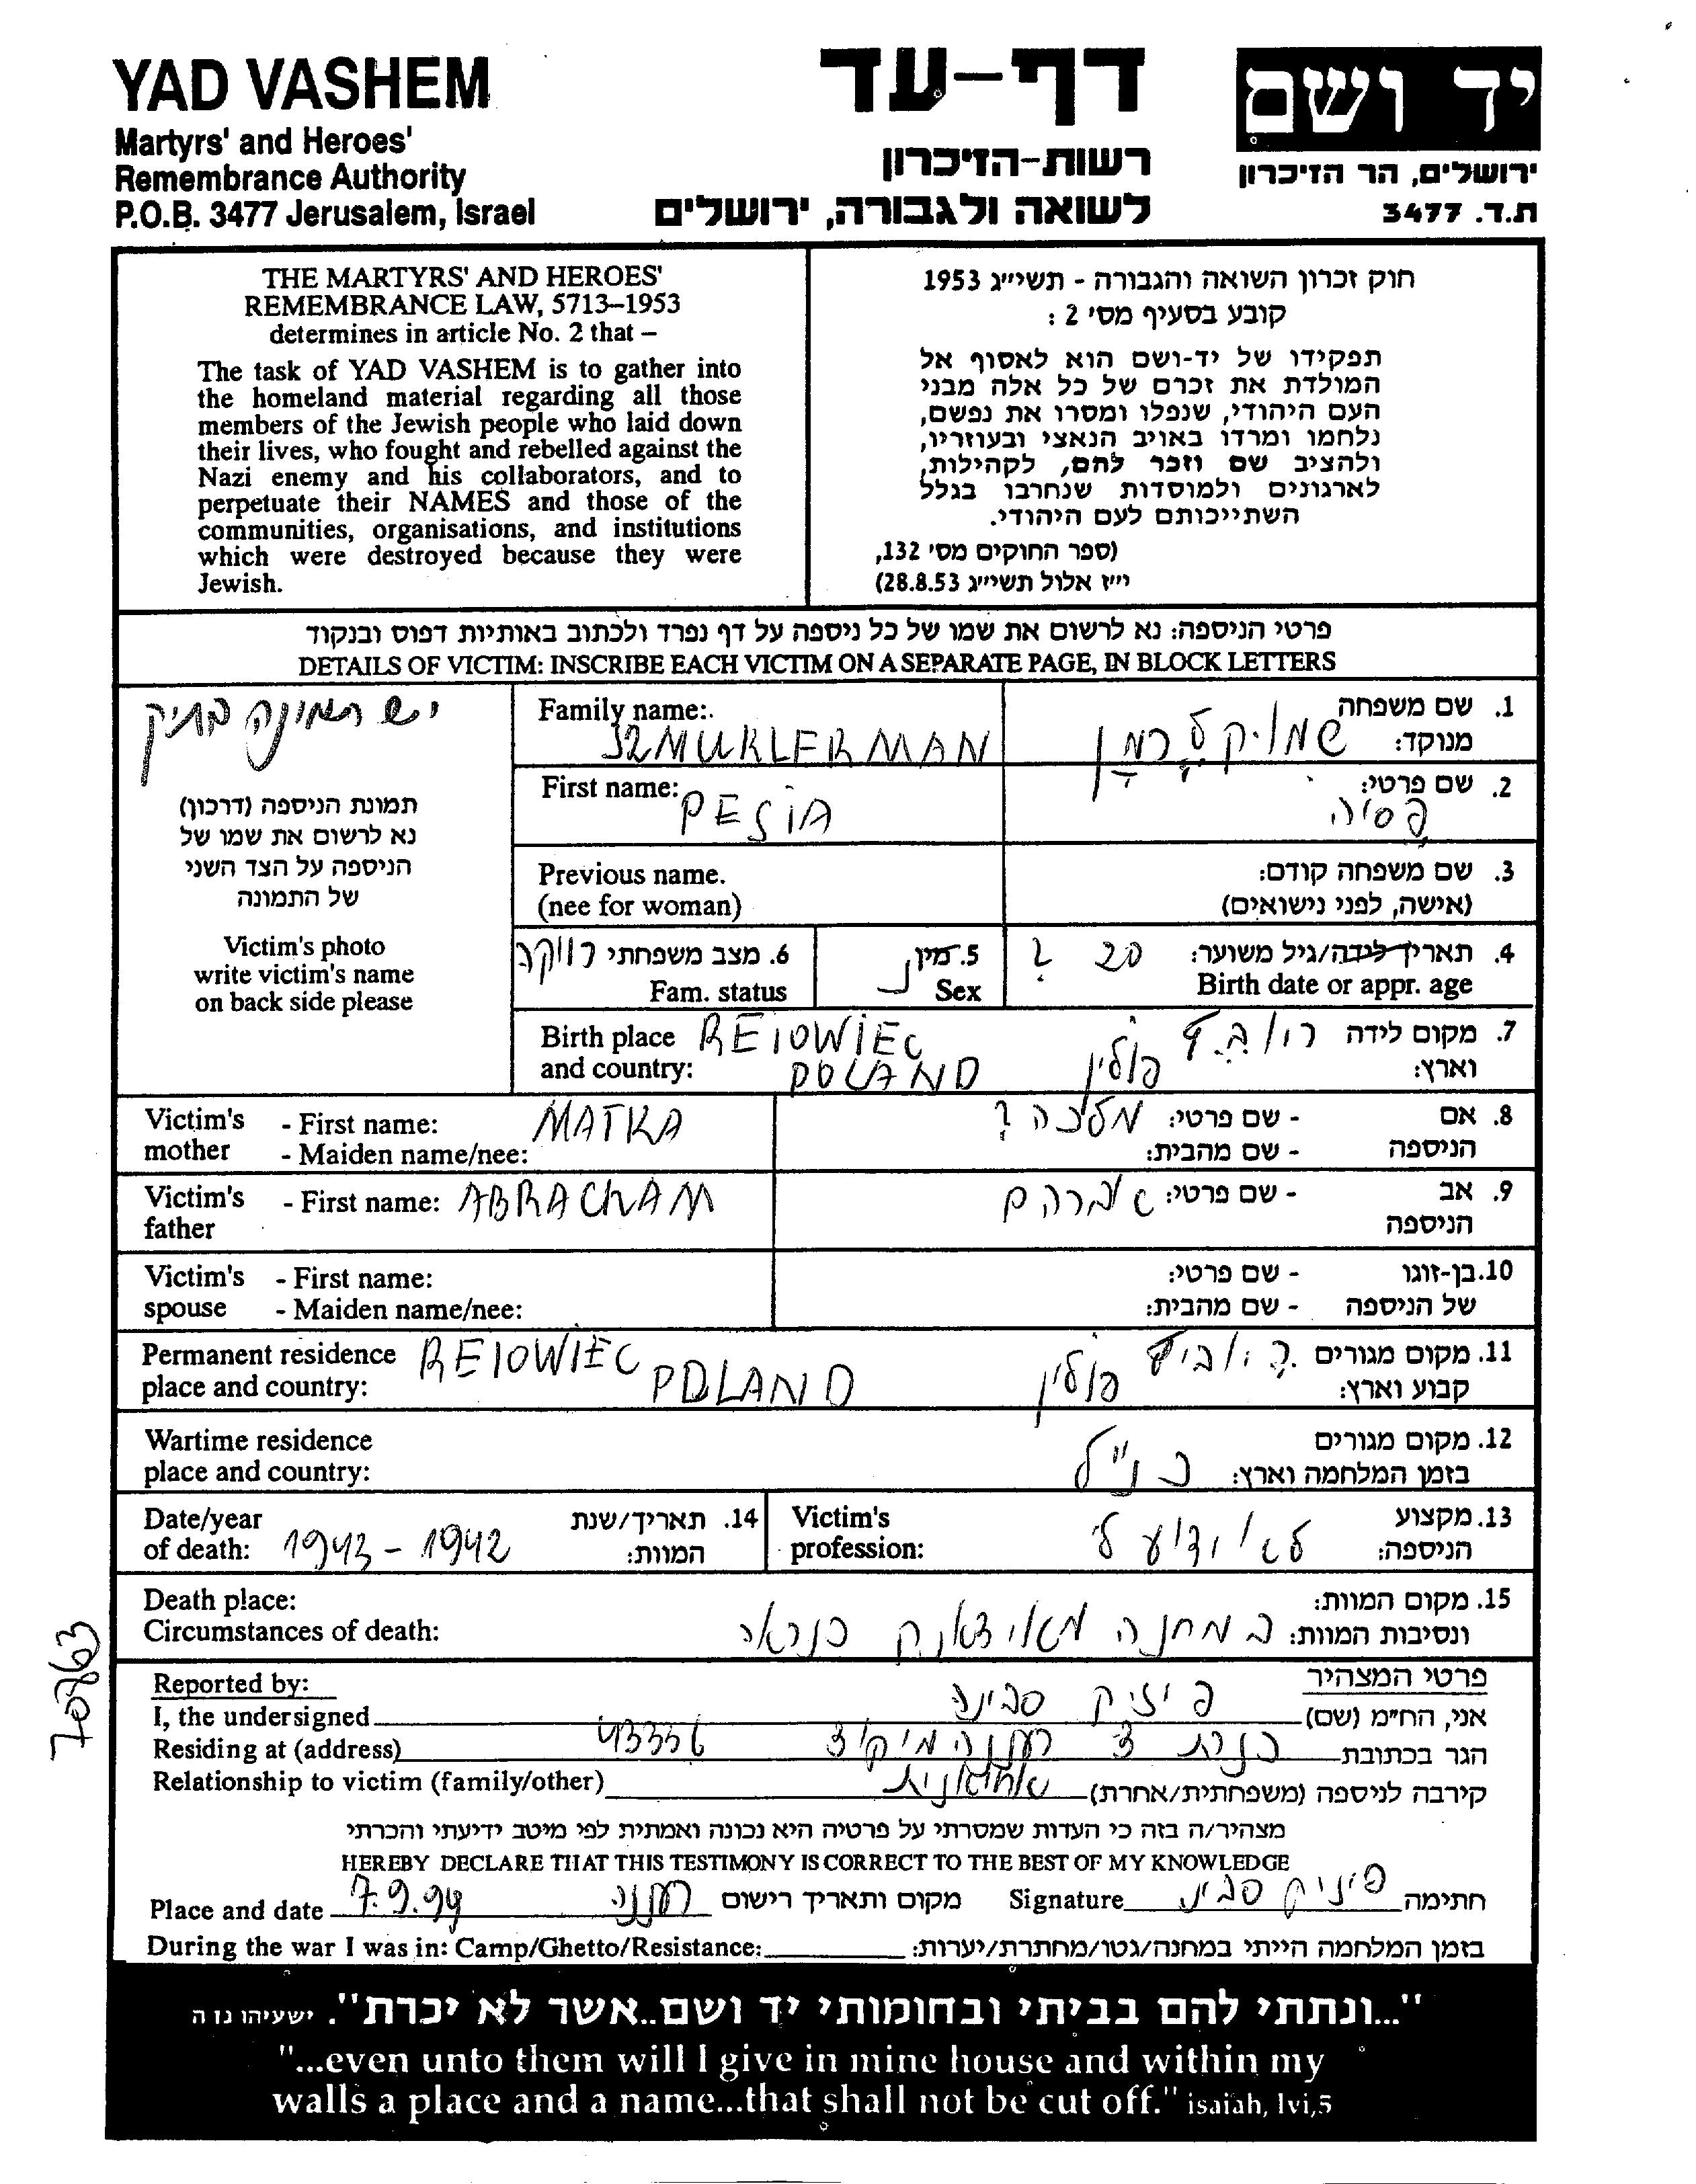 YAD VASHEM
Martyrs' and Heroes'
Remembrance Authority
P.O.B. 3477 Jerusalem, Israel
דף-עד
רשות-הזיכרון
לשואה ולגבורה, ירושלים
יד ושם
ירושלים, הר הזיכרון
ת.ד. 3477
THE MARTYRS' AND HEROES'
REMEMBRANCE LAW, 5713–1953
determines in article No. 2 that –
The task of YAD VASHEM is to gather into
the homeland material regarding all those
members of the Jewish people who laid down
their lives, who fought and rebelled against the
Nazi enemy and his collaborators, and to
perpetuate their NAMES and those of the
communities, organisations, and institutions
which were destroyed because they were
Jewish.
חוק זכרון השואה והגבורה - תשי״ג 1953
קובע בסעיף מס׳ 2 :
תפקידו של יד-ושם הוא לאסוף אל
המולדת את זכרם של כל אלה מבני
העם היהודי, שנפלו ומסרו את נפשם,
נלחמו ומרדו באויב הנאצי ובעוזריו,
ולהציב שם וזכר להם, לקהילות,
לארגונים ולמוסדות שנחרבו בגלל
השתייכותם לעם היהודי.
(ספר החוקים מס׳ 132,
י״ז אלול תשי״ג 28.8.53)
פרטי הניספה: נא לרשום את שמו של כל ניספה על דף נפרד ולכתוב באותיות דפוס ובנקוד
DETAILS OF VICTIM: INSCRIBE EACH VICTIM ON A SEPARATE PAGE, IN BLOCK LETTERS
יש תמונה בתיק
תמונת הניספה (דרכון)
נא לרשום את שמו של
הניספה על הצד השני
של התמונה
Victim's photo
write victim's name
on back side please
Family name: SZMUKLERMAN
1. שם משפחה
מנוקד: שמוקלרמן
First name: PESIA
2. שם פרטי:
פסיה
Previous name.
(nee for woman)
3. שם משפחה קודם:
(אישה, לפני נישואים)
4. תאריך לידה/גיל משוער: 20 ?
Birth date or appr. age
5. מין נ
Sex
6. מצב משפחתי רווקה
Fam. status
Birth place REIOWIEC
and country: POLAND
7. מקום לידה
וארץ: פולין
Victim's - First name: MATKA
mother - Maiden name/nee:
8. אם - שם פרטי: מלכה ?
הניספה - שם מהבית:
Victim's - First name: ABRACHAM
father
9. אב - שם פרטי: אברהם
הניספה
Victim's - First name:
spouse - Maiden name/nee:
10. בן-זוגו - שם פרטי:
של הניספה - שם מהבית:
Permanent residence REIOWIEC
place and country: POLAND
11. מקום מגורים
קבוע וארץ: פולין
Wartime residence
place and country:
12. מקום מגורים
בזמן המלחמה וארץ: כנ״ל
Date/year
of death: 1943 - 1942
14. תאריך/שנת
המוות:
Victim's
profession:
13. מקצוע
הניספה: לא ידוע לי
Death place:
Circumstances of death:
15. מקום המוות:
ונסיבות המוות: במחנה מאידאנק כנראה
Reported by:
פרטי המצהיר
I, the undersigned
אני, הח״מ (שם) סבינה
Residing at (address) 43336
הגר בכתובת כנרת 3 רעננה
Relationship to victim (family/other)
קירבה לניספה (משפחתית/אחרת)
מצהיר/ה בזה כי העדות שמסרתי על פרטיה היא נכונה ואמתית לפי מיטב ידיעתי והכרתי
HEREBY DECLARE THAT THIS TESTIMONY IS CORRECT TO THE BEST OF MY KNOWLEDGE
Place and date 7.9.94 רעננה מקום ותאריך רישום
Signature סבינה חתימה
During the war I was in: Camp/Ghetto/Resistance:
בזמן המלחמה הייתי במחנה/גטו/מחתרת/יערות:
"...ונתתי להם בביתי ובחומותי יד ושם..אשר לא יכרת". ישעיהו נו ה
"...even unto them will I give in mine house and within my
walls a place and a name...that shall not be cut off." isaiah, lvi,5